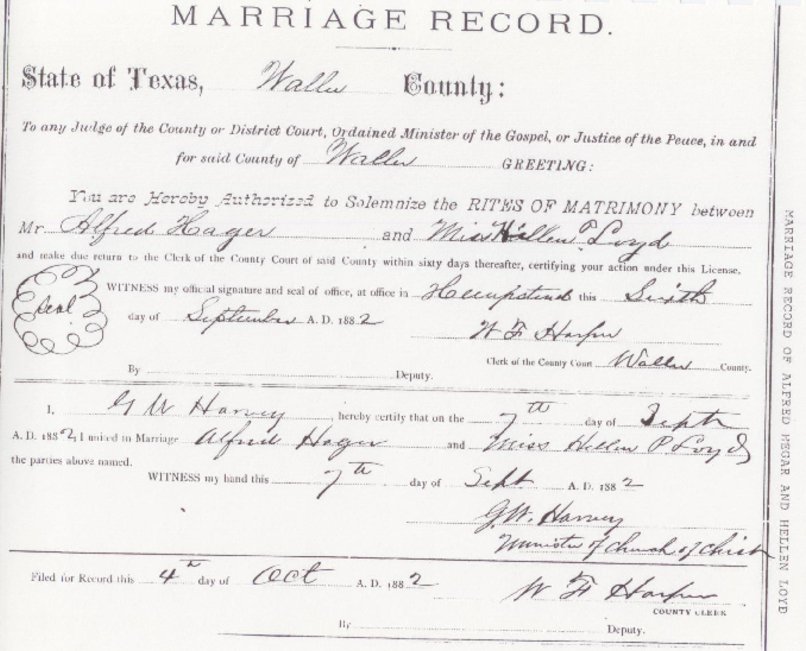 MARRIAGE RECORD.
State of Texas, Waller County:
To any Judge of the County or District Court, Ordained Minister of the Gospel, or Justice of the Peace, in and
for said County of Waller GREETING:
You are Hereby Authorized to Solemnize the RITES OF MATRIMONY between
Mr Alfred Hager and Miss Hellen P. Loyd
and make due return to the Clerk of the County Court of said County within sixty days thereafter, certifying your action under this License.
Seal
WITNESS my official signature and seal of office, at office in Hempstead this Sixth
day of September A. D. 1882
W F Harper
Clerk of the County Court Waller County.
By Deputy.
I, G W Harvey, hereby certify that on the 7th day of Sept
A. D. 1882, I united in Marriage Alfred Hager and Miss Hellen P Loyd
the parties above named.
WITNESS my hand this 7th day of Sept A. D. 1882
G. W. Harvey
Minister of Church of Christ
Filed for Record this 4 day of Oct A. D. 1882
W F Harper
COUNTY CLERK
By Deputy.
MARRIAGE RECORD OF ALFRED HEGAR AND HELLEN LOYD